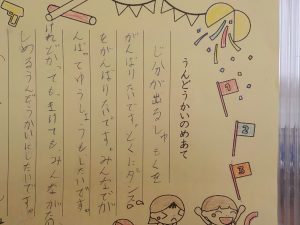 うんどうかいのめあて
じぶんが出るしゅもくを
がんばりたいです。とくにダンス
をがんばりたいです。みんなでが
んばってゆうしょうもしたいです。
けれどかっても、まけても、みんながたの
しめるうんどうかいにしたいです。
1
2
3